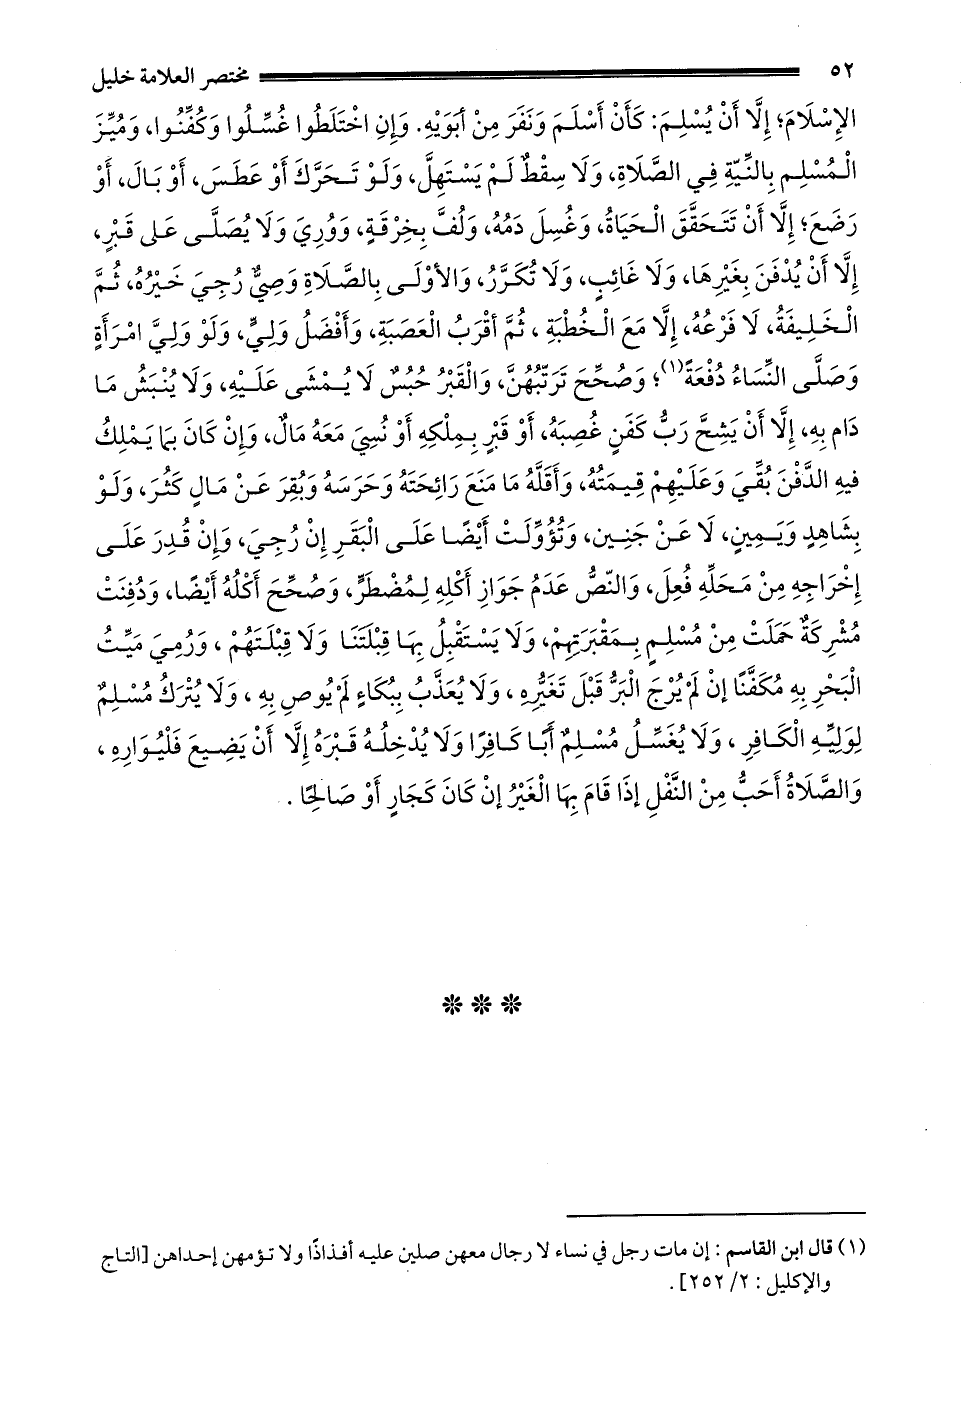 ٥٢ مختصر العلامة خليل
الإِسْلَامَ؛ إِلَّا أَنْ يُسْلِمَ: كَأَنْ أَسْلَمَ وَنَفَرَ مِنْ أَبَوَيْهِ. وَإِنِ اخْتَلَطُوا غُسِّلُوا وَكُفِّنُوا، وَمُيِّزَ
الْمُسْلِمِ بِالنِّيَّةِ فِي الصَّلَاةِ، وَلَا سِقْطٌ لَمْ يَسْتَهِلَّ، وَلَوْ تَحَرَّكَ أَوْ عَطَسَ، أَوْ بَالَ، أَوْ
رَضَعَ؛ إِلَّا أَنْ تَتَحَقَّقَ الْحَيَاةُ، وَغُسِلَ دَمُهُ، وَلُفَّ بِخِرْقَةٍ، وَوُرِيَ وَلَا يُصَلَّى عَلى قَبْرٍ،
إِلَّا أَنْ يُدْفَنَ بِغَيْرِهَا، وَلَا غَائِبٍ، وَلَا تُكَرَّرُ، وَالأَوْلَى بِالصَّلَاةِ وَصِيٌّ رُجِيَ خَيْرُهُ، ثُمَّ
الْخَلِيفَةُ، لَا فَرْعُهُ، إِلَّا مَعَ الْخُطْبَةِ ، ثُمَّ أَقْرَبُ الْعَصَبَةِ، وَأَفْضَلُ وَلِيٍّ، وَلَوْ وَلِيَّ امْرَأَةٍ
وَصَلَّى النِّسَاءُ دُفْعَةً(١)؛ وَصُحِّحَ تَرَتُّبُهُنَّ، وَالْقَبْرُ حُبُسٌ لَا يُمْشَى عَلَيْهِ، وَلَا يُنْبَشُ مَا
دَام بِهِ، إِلَّا أَنْ يَشِحَّ رَبُّ كَفَنٍ غُصِبَهُ، أَوْ قَبْرٍ بِمِلْكِهِ أَوْ نُسِيَ مَعَهُ مَالٌ، وَإِنْ كَانَ بِمَا يَمْلِكُ
فيهِ الدَّفْنَ بُقِّيَ وَعَلَيْهِمْ قِيمَتُهُ، وَأَقَلَّهُ مَا مَنَعَ رَائِحَتَهُ وَحَرَسَهُ وَبُقِرَ عَنْ مَالٍ كَثُرَ، وَلَوْ
بِشَاهِدٍ وَيَمِينٍ، لَا عَنْ جَنِينٍ، وَتُؤُوِّلَتْ أَيْضًا عَلَى الْبَقَرِ إِنْ رُجِيَ، وَإِنْ قُدِرَ عَلَى
إِخْرَاجِهِ مِنْ مَحَلِّهِ فُعِلَ، وَالنّصُّ عَدَمُ جَوَازِ أَكْلِهِ لِمُضْطَرٍّ، وَصُحِّحَ أَكْلُهُ أَيْضًا، وَدُفِنَتْ
مُشْرِكَةٌ حَمَلَتْ مِنْ مُسْلِمٍ بِمَقْبَرَتِهِمْ، وَلَا يَسْتَقْبِلُ بِهَا قِبْلَتَنَا وَلَا قِبْلَتَهُمْ ، وَرُمِيَ مَيِّتُ
الْبَحْرِ بِهِ مُكَفَّنًا إِنْ لَمْ يُرْجَ الْبَرُّ قَبْلَ تَغَيُّرِهِ ، وَلَا يُعَذَّبُ بِبُكَاءٍ لَمْ يُوصِ بِهِ ، وَلَا يُتْرَكُ مُسْلِمٌ
لِوَلِيِّهِ الْكَافِرِ ، وَلَا يُغَسِّلُ مُسْلِمٌ أَبًا كَافِرًا وَلَا يُدْخِلُهُ قَبْرَهُ إِلَّا أَنْ يَضِيعَ فَلْيُوَارِهِ ،
وَالصَّلَاةُ أَحَبُّ مِنْ النَّفْلِ إِذَا قَامَ بِهَا الْغَيْرُ إِنْ كَانَ كَجَارٍ أَوْ صَالِحًا .
***
(١) قال ابن القاسم : إن مات رجل في نساء لا رجال معهن صلين عليه أفذاذًا ولا تؤمهن إحداهن [التاج
والإكليل : ٢/ ٢٥٢] .